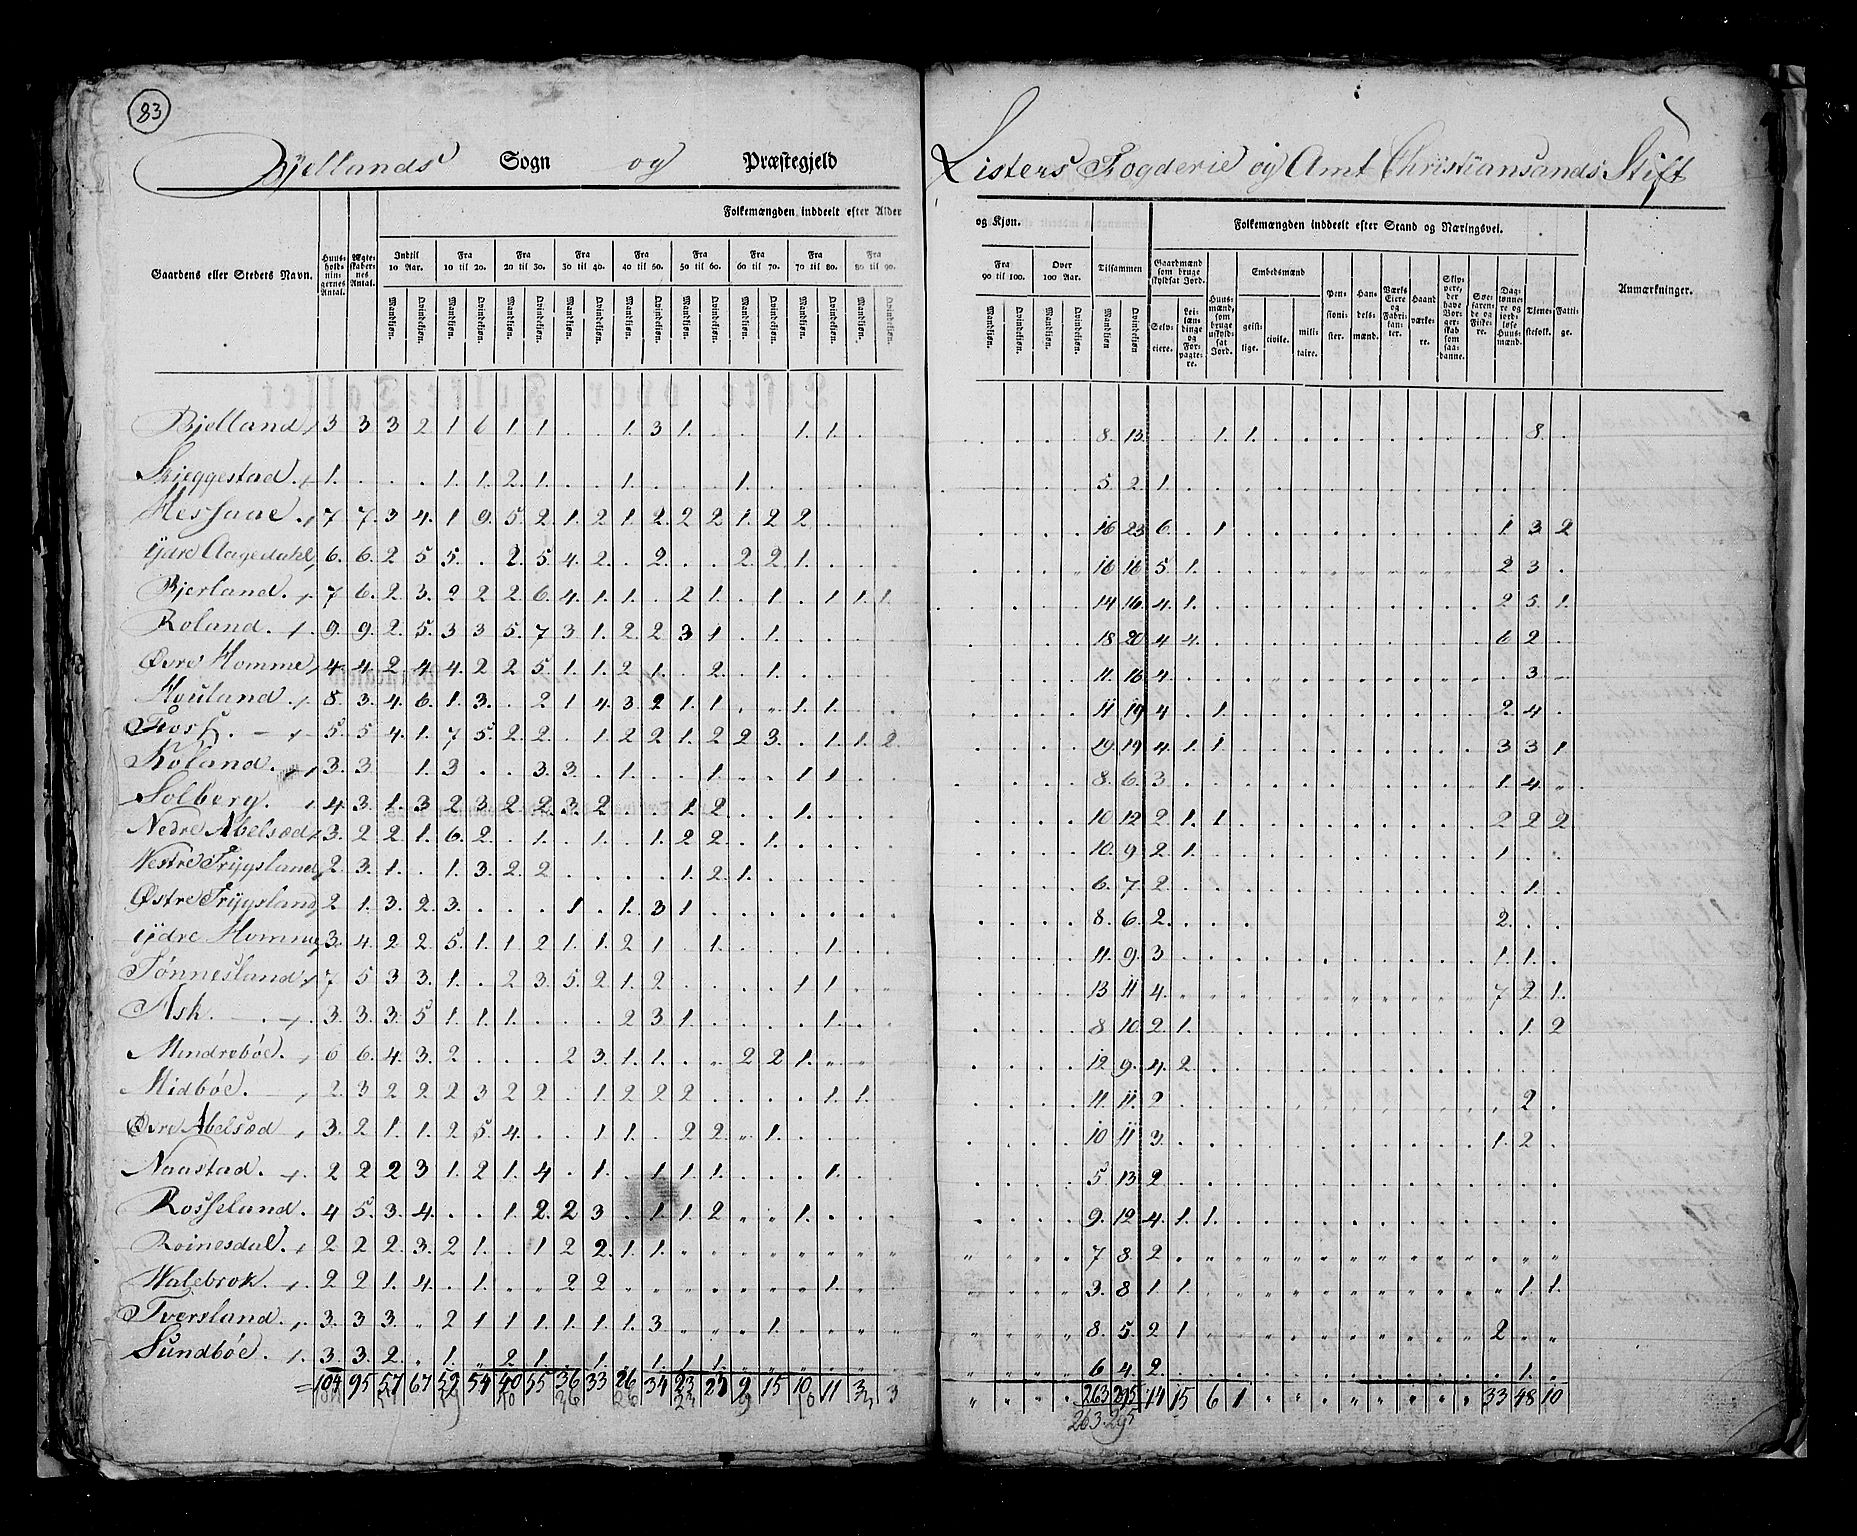 83
Bjellands Sogn og Præstegjeld
Listers Fogderie og Amt Christiansands Stift
Gaardens eller Stedets Navn.
Huus-holdnin-gernes Antal.
Ægte-skaber-nes Antal.
Folkemængden inddeelt efter Alder og Kjøn.
Indtil 10 Aar. Fra 10 til 20. Fra 20 til 30. Fra 30 til 40. Fra 40 til 50. Fra 50 til 60. Fra 60 til 70. Fra 70 til 80. Fra 80 til 90. Fra 90 til 100. Over 100 Aar. Tilsammen
Mandkjøn. Qvindekjøn.
Folkemængden inddeelt efter Stand og Næringsvei.
Gaardmænd som bruge skyldsat Jord.
Selv-eiere. Lei-læn-dinge og For-pagte-re.
Huus-mænd, som bruge uskyld-sat Jord.
Embedsmænd
geist-lige. civile. mili-taire.
Pen-sioni-ster. Han-dels-mænd. Værks Eiere og Fabri-kan-ter. Haand værke-re.
Søe-farende og Fiske-re.
Tjene-stefolk. Fatti-ge.
Anmærkninger.
Bjelland 3 3 3 2 1 6 1 1 . . 1. 3 1. . . . 1. 1. . . . . . . 8. 13 . . 1. 1. . . . . . . . . . . 8. .
Skieggestad 1. . . . 1. 1. 2. 1. . . 1. . . . 1. . . . . . . . . . 5. 2. 1. . . . . . . . . . . . . . . .
Hessaae 7 7. 3 4. 1 9. 5. 2 1. 2 1. 2. 2 2 1. 2 2. . . . . . . . 16 23 6. . 1. . . . . . . . . . . 1 3 2
ydre Aagedahl 6. 6. 2 5 5. . 2. 5 4. 2. . 2. . . 2. 2. 1. . . . . . . . 16 16 5. 1. . . . . . . . . . . . 2 3. .
Bjerland 7 6. 2. 3. 2 2 2. 6. 4. 1. 1. . 2 1. . 1. . 1. 1. 1. . . . . 14 16. 4. 1. . . . . . . . . . . . 2 5. 1.
Roland. 9. 9. 2. 5. 3 3 5. 7 3 1. 2 2 3 1 . 1. . . . . . . . . 18 20 4 4. . . . . . . . . . . . 6 2 .
Øvre Homme 4. 4 2. 4 4. 2 2 5. 1. 1. 2 1. . 2. . 1. . . . . . . . . 11. 16 4. . . . . . . . . . . . . . 3. .
Houland 8. 3. 4. 6. 1. 3. . 2 1 4. 3 2 1. 1. . . 1. 1. . . . . . . 11 19 4. . 1. . . . . . . . . . . 2. 4. .
Foss. 5. 5 4. 1. 7 5. 2 2. . 1. 2 2 1. 2 2 3. . 1. 1. 2. . . . . 19. 19 4. 1. 1. . . . . . . . . . . 3 3 1.
Röland. 3. 3 . 1. 3 . . 3. 3. . 1. . . 1. . . 1 1. . . . . . . 8. 6. 3 . . . . . . . . . . . . 1. 4. .
Solberg. 4 3. 1. 3 2 3. 2 2. 3 2 . . 1. 2. . . 1. . . . . . . . 10 12 2 1. 1. . . . . . . . . . . 2 2 2
Nedre Abelsæd 3. 2 2 1. 6 2. . 1. . 1. . 1. 2 2. . 1. . . . . . . . . 10. 9. 2. 1. . . . . . . . . . . . 1. . .
Vestre Trygsland 2. 3 1. . 1. 3. 2. 2 . . . . 1. 2. 1. . . . . . . . . . 6. 7. 2 . . . . . . . . . . . . . 1. .
Østre Trygsland 2 1. 3. 2. 3. . . . 1 . 1. 3 1 . . . . . . . . . . . 8. 6. 2. . . . . . . . . . . . . 2. . .
ydre Homme 3. 4. 2 2. 5. 1. 1. 2 1. 1. 2 1. . 1. . . . 1. . . . . . . 11. 9. 3 . . . . . . . . . . . . 1. 1. .
Tönnesland 7 5 3 3. 1. . 2 3. 5. 2 1. 2 . . . . 1 1. . . . . . . 13 11 4. . . . . . . . . . . . . 7 2 1.
Ask. 3. 3. 3. 5 1. 1. 1. . . . 2 3 1. . . . . 1. . . . . . . 8 10. 2. 1. . . . . . . . . . . . . 1. 2
Mindreböe. 6 6. 4. 3. 2 . . . 2 3. 1. 1. . . 2 2 1. . . . . . . . 12 9. 4. 2. . . . . . . . . . . . . . .
Midböe. 2. 3 2 2 2 3 2 2 . 1. 2 2 2 . . . . 1. 1. . . . . . 11. 11. 2 . . . . . . . . . . . . . 2 .
Øvre Abelsæd 3. 2 1. 1. 2 5. 4. . . 1 1. . 2 2. . 1. . . . . . . . . 10 11 3. . . . . . . . . . . . . 1. 2. .
Naastad. 2 2 2 3 1. 2 1. 4 . 1. . 1. 1. 1. . . . 1. . . . . . . 5. 13 2 . . . . . . . . . . . . . . .
Rosseland. 4 5. 3. 4. . . 1. 2. 2 3 . 1. 1. 2 . . 1. . . . . . . . 9. 12 4. 1. 1. . . . . . . . . . . . . .
Roinesdal. 2 2 2. 3. 2 1. . 1 2 2. 1. 1. . . . . . . . . . . . . 7 8. 2 . . . . . . . . . . . . . . .
Walebrok. 2 2 1. 4. . 1. . . 2 2 . . . . . . . 1. . . . . . . 3. 8 1 1. . . . . . . . . . . . . 1. 1.
Tversland. 3. 3 3. . 2 1 1 1. 1. 1. 1. 3 . . . 1. . . . . . . . . 8. 5. 2 1 . . . . . . . . . . . 2 . .
Sundböe. 3. 3. 2. . 1. . 2 1. . 1. . 1. 1. 1. . . . . . . . . . . 6 4 2. . . . . . . . . . . . . . 1. .
= 104 95 57 67 59 54 40 55 36 33 26 34 23 27 9 15 10 11 3 3 . . . . 263 295 74 15 6 1 . . . . . . . . . 33 48 10
263. 295